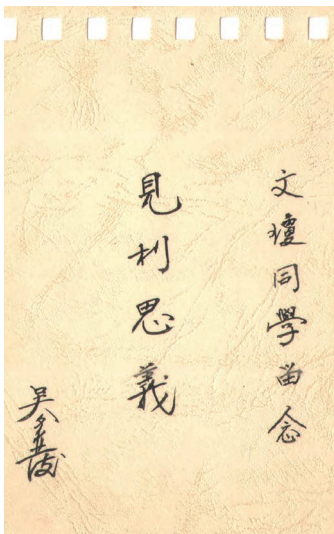 文瓊同學留念
見利思義
吳